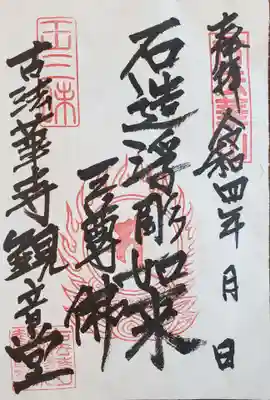 奉拝 令和四年 月 日
石造浮彫如来
三尊佛
古法華寺観音堂